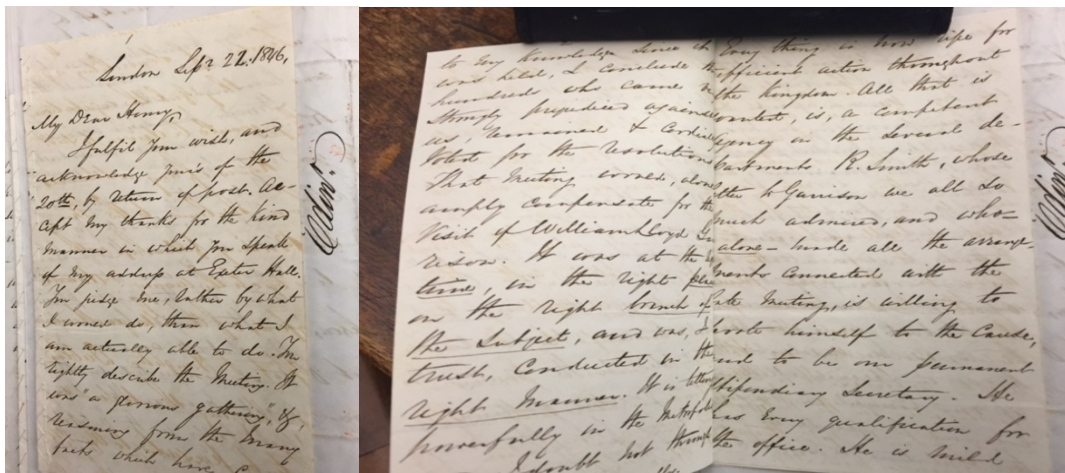 London Sept 22. 1846.
My Dear Henry,
I fulfil your wish, and
acknowledge yours of the
20th, by return of post. Ac-
cept my thanks for the kind
manner in which you speak
of my address at Exeter Hall.
You judge me, rather by what
I would do, than what I
am actually able to do. You
rightly describe the Meeting. It
was "a glorious gathering," &,
reasoning from the many
facts which have
Edinr
to my knowledge since
was held, I conclude
hundreds who came
strongly prejudiced
us, remained &
voted for the Resolution
That Meeting would, alone
amply compensate for the
visit of William Lloyd
rison. It was at the
time, in the right
on the right branch of
the Subject, and was, I
trust, conducted in the
right Manner. It is telling
powerfully in the
I doubt not
Every thing is now ripe for
efficient action throughout
the Kingdom. All that is
wanted, is, a competent
agency in the several de-
partments R. Smith, whose
letter to Garrison we all so
much admired, and who
alone made all the arrange-
ments connected with the
late Meeting, is willing to
devote himself to the Cause,
and to be our permanent
stipendiary Secretary. He
has every qualification for
the office. He is mild
Edinr